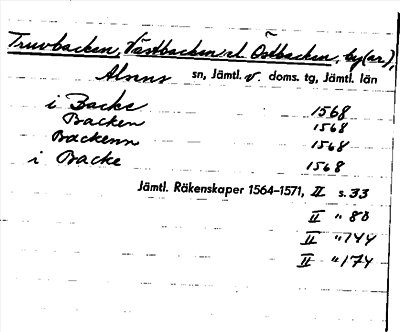 Truvbacken, Västbacken el. Östbacken, by(ar),
Alsens sn, Jämtl. v. doms. tg, Jämtl. län
i Backe 1568
Backen 1568
Backenn 1568
i Backe 1568
Jämtl. Räkenskaper 1564-1571, II s. 33
II " 80
II " 144
II " 174